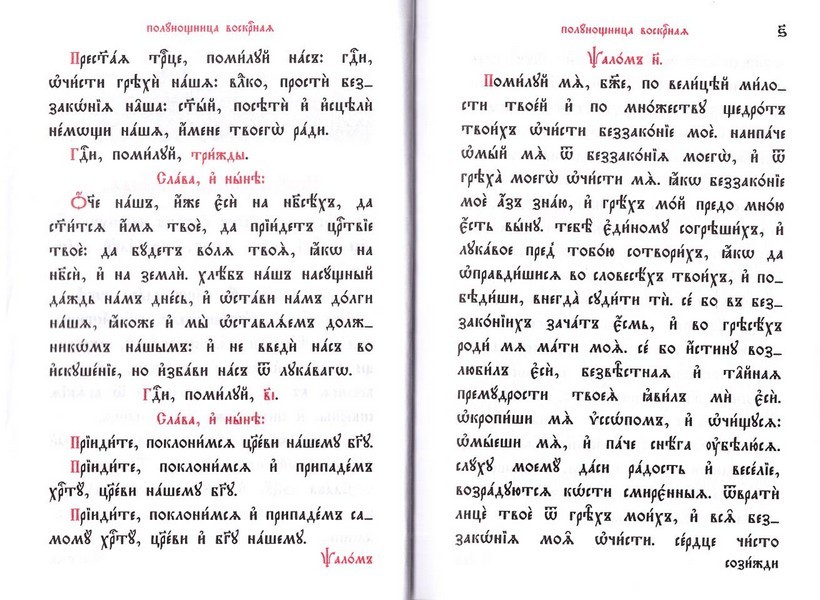 полꙋнощница воскрⷭ҇наѧ
Прест҃аѧ трⷪ҇це, поми́лꙋй на́съ: гдⷭ҇и,
ѡ҆чи́сти грѣхѝ на́шѧ: влⷣко, простѝ без_
закѡ́нїѧ на̑ша: ст҃ый, посѣтѝ и҆ и҆сцѣлѝ
не́мѡщи на́шѧ, и҆́мене твоегѡ̀ ра́ди.
Гдⷭ҇и, поми́лꙋй, три́жды.
Сла́ва, и҆ ны́нѣ:
Ѻ҆́ч҃е на́шъ, и҆́же є҆сѝ на нб҃сѣ́хъ, да
ст҃и́тсѧ и҆́мѧ твоѐ, да прїи́детъ црⷭ҇твїе
твоѐ: да бꙋ́детъ во́лѧ твоѧ̀, ꙗ҆́кѡ на
нб҃сѝ, и҆ на землѝ. хлѣ́бъ на́шъ насꙋ́щный
да́ждь на́мъ дне́сь, и҆ ѡ҆ста́ви на́мъ дѡ́лги
на́шѧ, ꙗ҆́коже и҆ мы̀ ѡ҆ставлѧ́емъ долж_
никѡ́мъ на́шымъ: и҆ не введѝ на́съ во
и҆скꙋше́нїе, но и҆зба́ви на́съ ѿ лꙋка́вагѡ.
Гдⷭ҇и, поми́лꙋй, в҃і.
Сла́ва, и҆ ны́нѣ:
Прїиди́те, поклони́мсѧ цр҃е́ви на́шемꙋ бг҃ꙋ.
Прїиди́те, поклони́мсѧ и҆ припаде́мъ
хрⷭ҇тꙋ̀, цр҃е́ви на́шемꙋ бг҃ꙋ.
Прїиди́те, поклони́мсѧ и҆ припаде́мъ са_
момꙋ̀ хрⷭ҇тꙋ̀, цр҃е́ви и҆ бг҃ꙋ на́шемꙋ.
Ѱало́мъ
полꙋнощница воскрⷭ҇наѧ
Ѱало́мъ н҃.
Поми́лꙋй мѧ̀, бж҃е, по вели́цѣй ми́ло_
сти твое́й и҆ по мно́жествꙋ щедро́тъ
твои́хъ ѡ҆чи́сти беззако́нїе моѐ. наипа́че
ѡ҆мы́й мѧ̀ ѿ беззако́нїѧ моегѡ̀, и҆ ѿ
грѣха̀ моегѡ̀ ѡ҆чи́сти мѧ̀. ꙗ҆́кѡ беззако́нїе
моѐ а҆́зъ зна́ю, и҆ грѣ́хъ мо́й предо мно́ю
є҆́сть вы́нꙋ. тебѣ̀ є҆ди́номꙋ согрѣши́хъ, и҆
лꙋка́вое пред̾ тобо́ю сотвори́хъ, ꙗ҆́кѡ да
ѡ҆правди́шисѧ во словесѣ́хъ твои́хъ, и҆ по_
бѣди́ши, внегда̀ сꙋди́ти тѝ. се́ бо въ без_
зако́нїихъ зача́тъ є҆́смь, и҆ во грѣсѣ́хъ
роди́ мѧ ма́ти моѧ̀. се́ бо и҆́стинꙋ воз_
люби́лъ є҆сѝ, безвѣ́стнаѧ и҆ та̑йнаѧ
премꙋ́дрости твоеѧ̀ ꙗ҆ви́лъ мѝ є҆сѝ.
ѡ҆кропи́ши мѧ̀ ѵ҆ссѡ́помъ, и҆ ѡ҆чи́щꙋсѧ:
ѡ҆мы́еши мѧ̀, и҆ па́че снѣ́га ᲂу҆бѣлю́сѧ.
слꙋ́хꙋ моемꙋ̀ да́си ра́дость и҆ весе́лїе,
возра́дꙋютсѧ кѡ́сти смире́нныѧ. ѿвратѝ
лицѐ твоѐ ѿ грѣ̑хъ мои́хъ, и҆ всѧ̑ без_
закѡ́нїѧ моѧ̑ ѡ҆чи́сти. се́рдце чи́сто
сози́жди